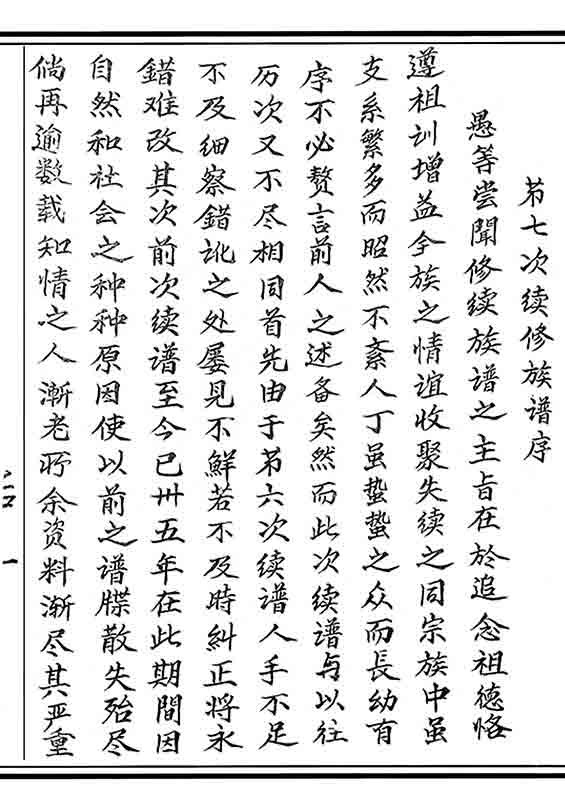 苐七次续修族谱序
愚等尝聞修续族谱之主旨在於追念祖德恪
遵祖训增益全族之情谊收聚失续之同宗族中虽
支系繁多而昭然不紊人丁虽蛰蛰之众而長幼有
序不必赘言前人之述备矣然而此次续譜与以往
历次又不尽相同首先由于苐六次续谱人手不足
不及细察錯讹之处屡見不鮮若不及時糾正将永
錯难改其次前次续谱至今已卅五年在此期間因
自然和社会之种种原因使以前之谱牒散失殆尽
倘再逾数载知情之人漸老所余资料渐尽其严重
一